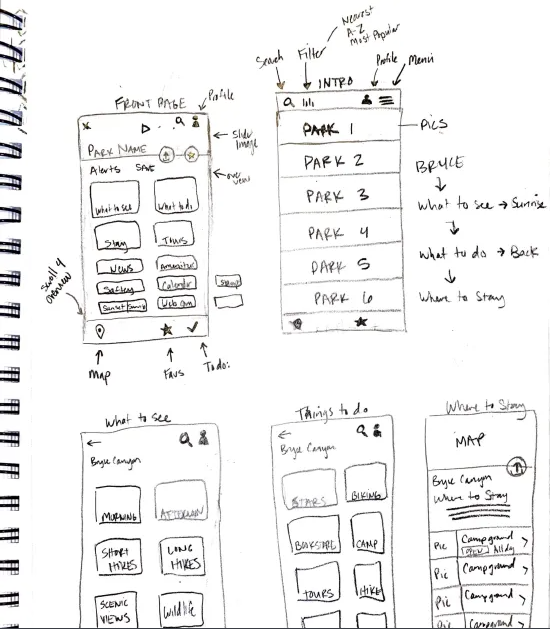 Nearest
A-Z
Most Popular
Search
Filter
Profile
Menu
INTRO
PARK 1
PARK 2
PARK 3
PARK 4
PARK 5
PARK 6
PICS
BRYCE
What to see → Sunrise
What to do → Back
Where to Stay
FRONT PAGE
Profile
Slider
Image
PARK NAME
Alerts SAVE
over
view
What to see
What to do
Stay
Tours
News
Amenities
Safety
Calendar
Web Cam
Scroll 4
overview
Map
Favs
To do:
What to see
Bryce Canyon
MORNING
AFTERNOON
SHORT
HIKES
LONG
HIKES
SCENIC
VIEWS
Wildlife
Things to do
Bryce Canyon
STARS
BIKING
BOOKSTORE
CAMP
TOURS
HIKE
Where to Stay
MAP
Bryce Canyon
Where to Stay
Pic
Campground
OPEN All day
Pic
Campground
Pic
Campground
Pic
Campground